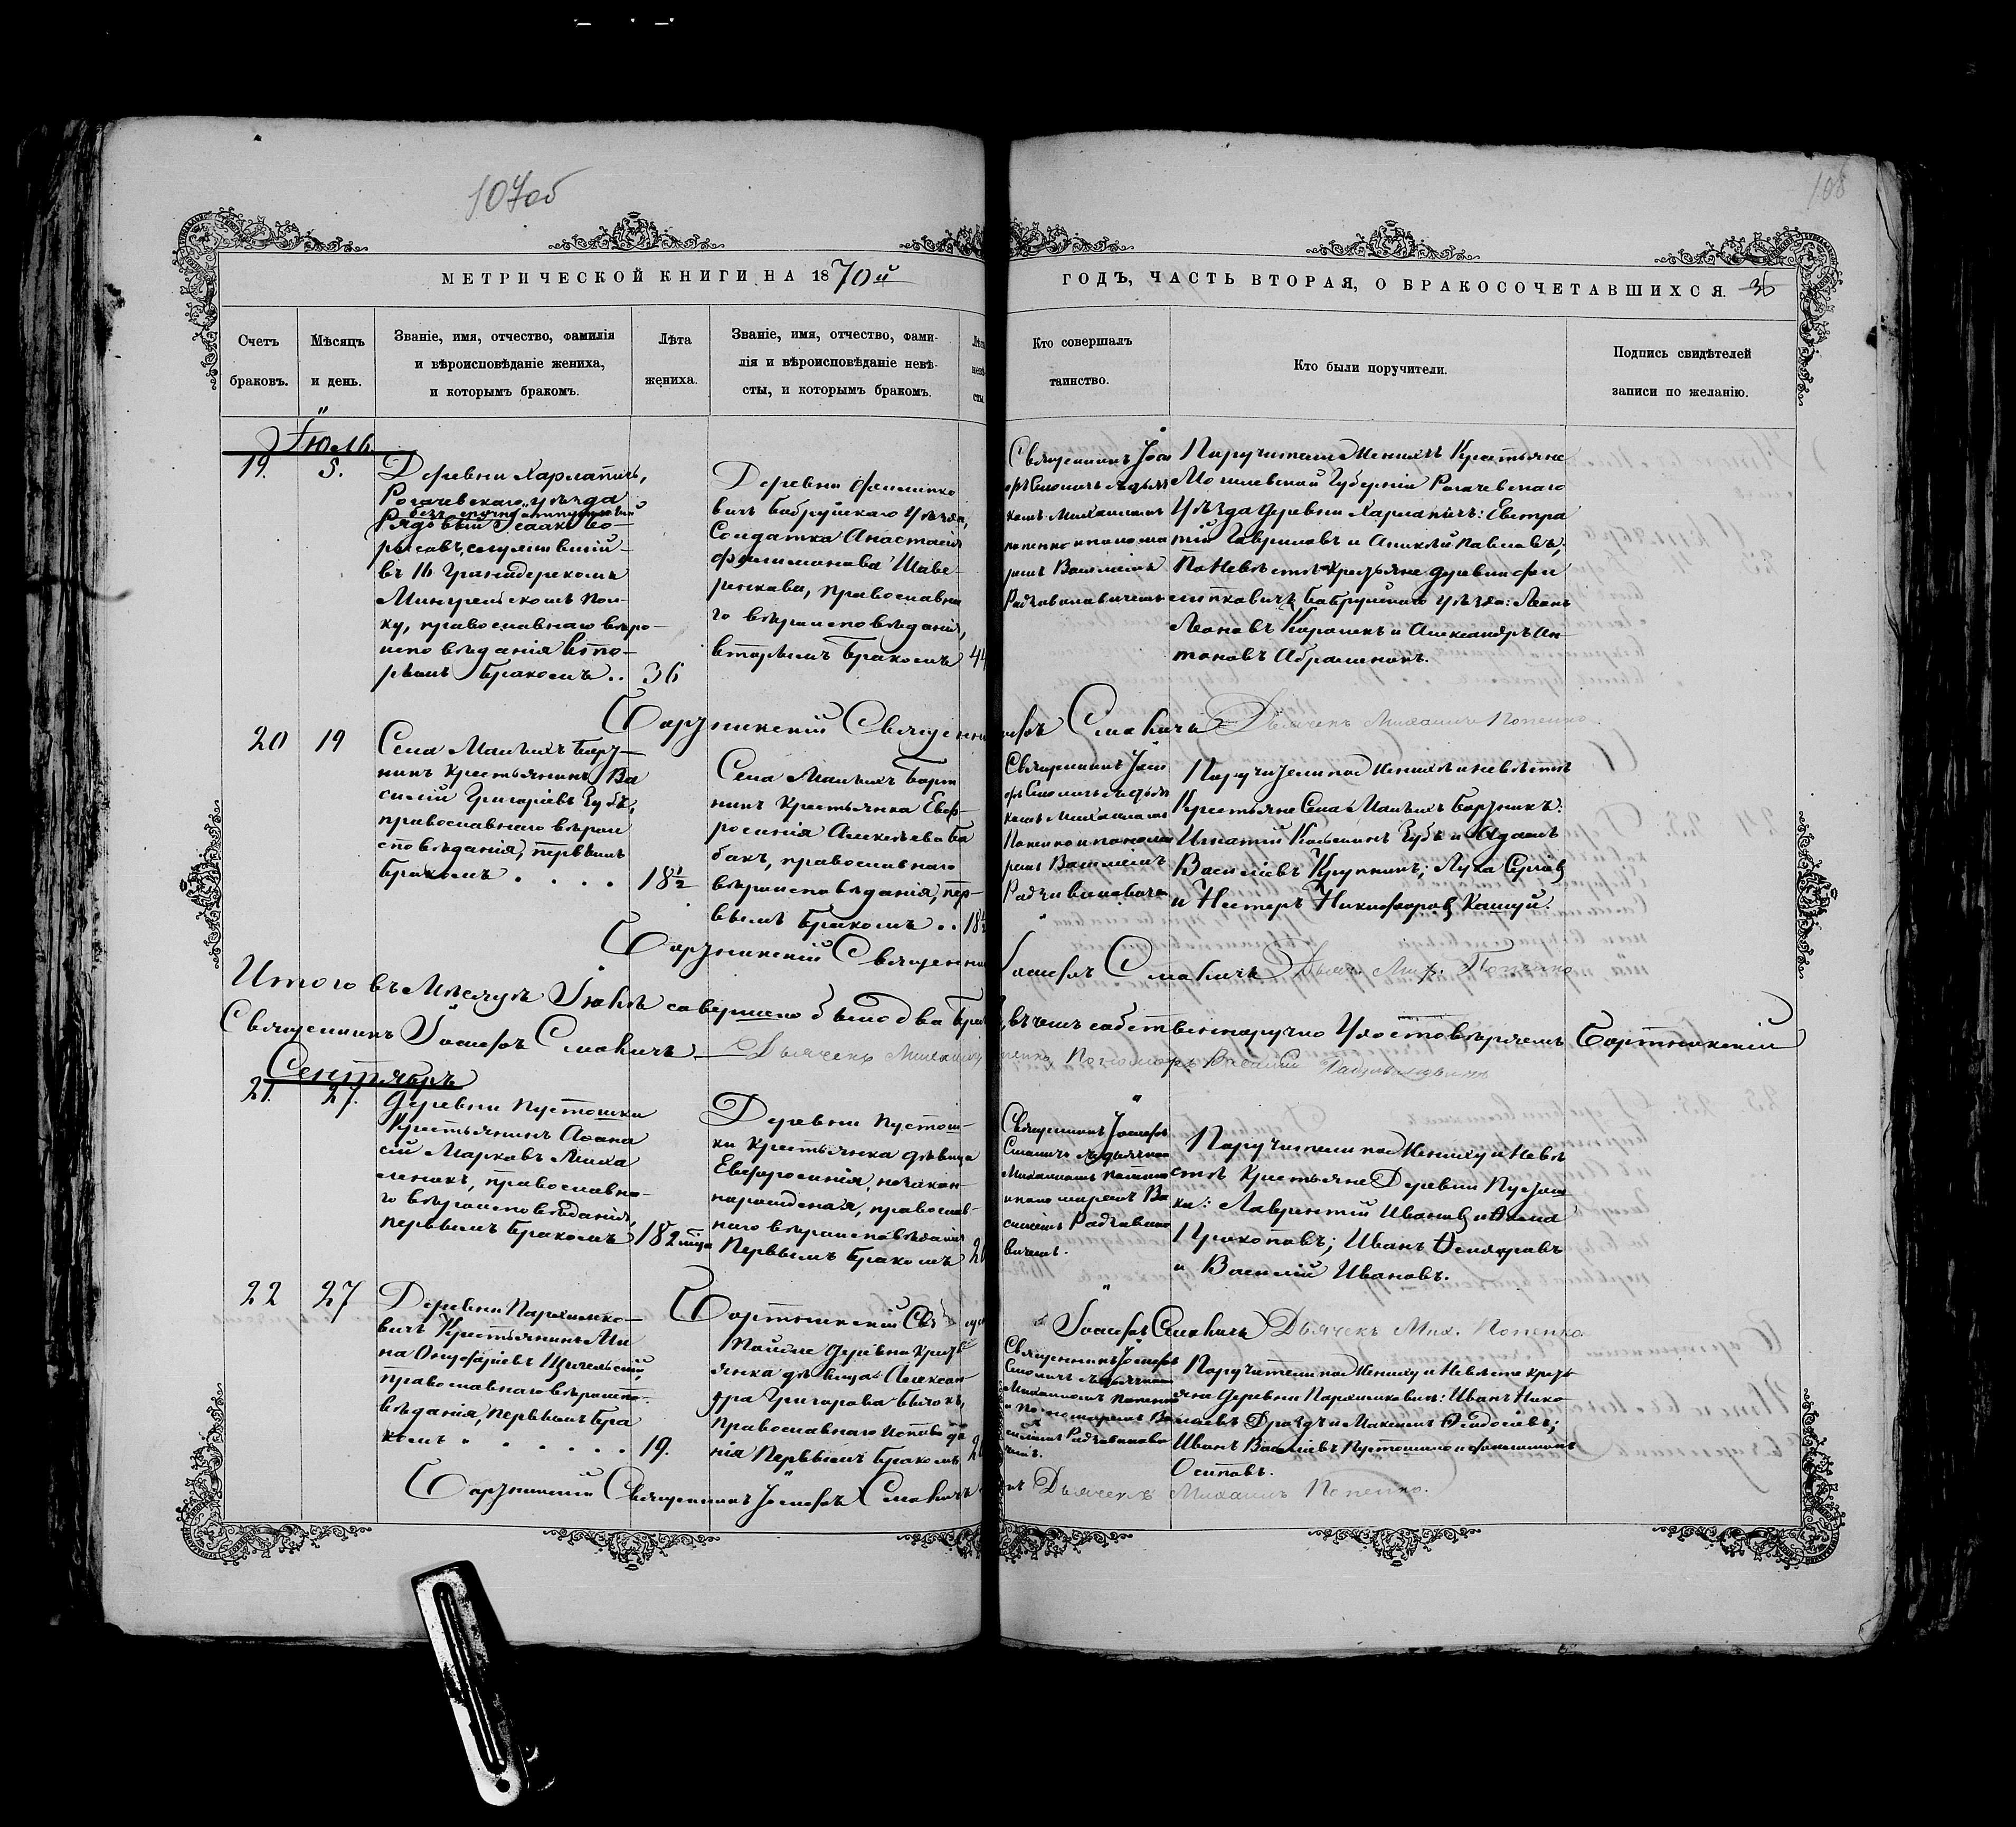 107об
108
МЕТРИЧЕСКОЙ КНИГИ НА 1870й
ГОДЪ, ЧАСТЬ ВТОРАЯ, О БРАКОСОЧЕТАВШИХСЯ. 36
Счетъ браковъ.
Мѣсяцъ и день.
Званіе, имя, отчество, фамилія
и вѣроисповѣданіе жениха,
и которымъ бракомъ.
Лѣта жениха.
Званіе, имя, отчество, фами-
лія и вѣроисповѣданіе невѣ-
сты, и которымъ бракомъ.
Кто совершалъ
таинство.
Кто были поручители.
Подпись свидѣтелей
записи по желанію.
Іюль
19. 5.
Деревни Харлапичъ,
Рогачевскаго уѣзда
Рядовый Исаакъ Бо-
рисовъ, служившій
въ 16 Гранадерскомъ
Мингрельскомъ пол-
ку, православнаго вѣро-
исповѣданія вто-
рымъ бракомъ..
36
Деревни Филипко
вичъ Бобруйскаго уѣзда,
Солдатка Анастасія
Филимонова Шаве-
рнкова, православна
го вѣроисповѣданія,
вторымъ бракомъ
44
Священникъ Іоси
фъ Смоличъ съ дьяч
комъ Михаиломъ
Попенко и понома
ремъ Василіемъ
Радзивиловичемъ
Поручители Жениха Крестьяне
Могилевской Губерніи Рогачевскаго
Уѣзда деревни Харлапичъ: Евстра
тій Гавриловъ и Аникѣй Павловъ;
По Невѣстѣ Крестьяне деревни Фи
липковичъ Бобруйскаго уѣзда: Леонъ
Леоновъ Каранекъ и Александръ Ан-
тоновъ Абраменокъ.
Бортникскій Священникъ Іосифъ Смоличъ Дьячекъ Михаилъ Попенко
20 19
Села Малыхъ Борт-
никъ Крестьянинъ Ва
силій Григоріевъ Губъ,
православнаго вѣрои
сповѣданія, первымъ
бракомъ . . . .
18½
Села Малыхъ Борт
никъ Крестьянка Евф-
росинія Алексѣева Ба
бакъ, православнаго
вѣроисповѣданія, пер-
вымъ бракомъ ..
18½
Священникъ Іоси
фъ Смоличъ съ дьяч
комъ Михаиломъ
Попенко и понома
ремъ Василіемъ
Радзивиловичемъ
Поручители по Женихѣ и невѣстѣ
Крестьяне Села Малыхъ Бортникъ:
Игнатій Козьминъ Губъ и Адамъ
Василіевъ Крупникъ; Лука Сергіевъ
и Несторъ Никифоровъ Кашуй.
Бортникскій Священникъ Іосифъ Смоличъ Дьячекъ Мих. Попенко
Итого въ Мѣсяцѣ Іюлѣ совершено было два брака, въ чемъ собственноручно удостовѣряемъ Бортникскій
Священникъ Іосифъ Смоличъ Дьячекъ Михаилъ Попенко, Пономарь Василій Радзивиловичъ
Сентябрь
21. 27.
Деревни Пустошки
Крестьянинъ Афана
сій Марковъ Миха
ленокъ, православна-
го вѣроисповѣданія,
первымъ бракомъ
Деревни Пустош-
ки Крестьянка дѣвица
Евфросинія, незакон-
норожденная, православ-
наго вѣроисповѣданія
Первымъ бракомъ
Священникъ Іосифъ
Смоличъ съ дьячкомъ
Михаиломъ Попенко
и пономаремъ Ва
силіемъ Радзивило
вичемъ.
Поручители по Жениху и Невѣ
стѣ Крестьяне Деревни Пустош
ки: Лаврентій Ивановъ и Фома
Прокоповъ; Иванъ Ѳеодоровъ
и Василій Ивановъ.
Бортникскій Священникъ Іосифъ Смоличъ Дьячекъ Мих. Попенко
22 27
Деревни Пархимко-
вичъ Крестьянинъ Ми
на Онуфріевъ
православнаго вѣроиспо-
вѣданія, первымъ бра
комъ . . . . . .
19.
деревни Кресть
янка дѣвица Алексан-
дра Григорова Бычокъ,
православнаго исповѣда
нія Первымъ бракомъ
Священникъ Іосифъ
Смоличъ съ дьячкомъ
Михаиломъ Попенко
и Пономаремъ Ва
силіемъ Радзивилови
чемъ.
Поручители по Жениху и Невѣсте Кресть
яне Деревни Пархимковичъ: Иванъ Нико
лаевъ Дроздъ и Максимъ Ѳедосіевъ;
Иванъ Василіевъ Пустошило и Филимонъ
Осиповъ.
Бортникскій Священникъ Іосифъ Смоличъ Дьячекъ Михаилъ Попенко.